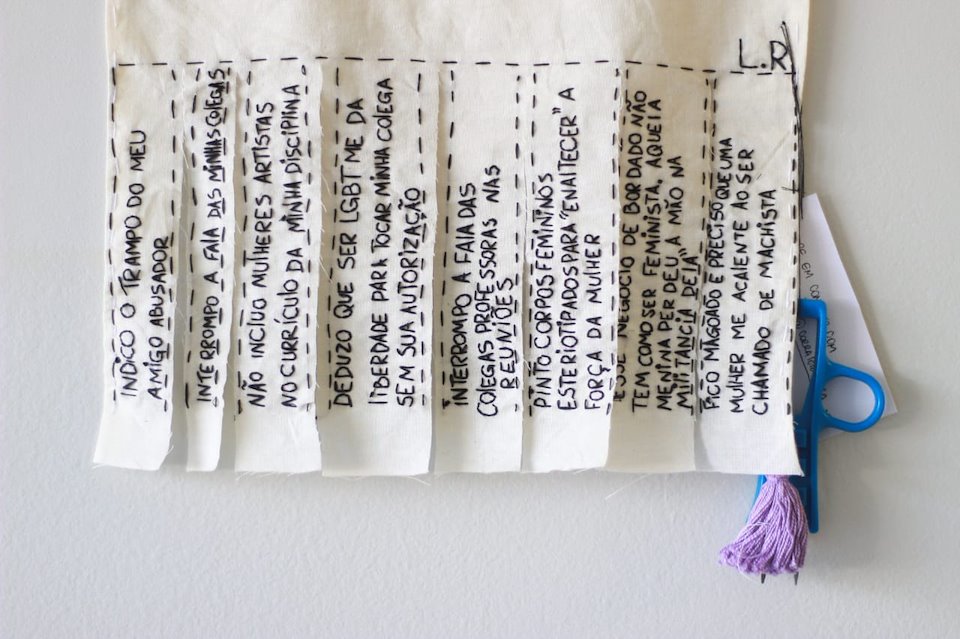 L.R
INDICO O TRAMPO DO MEU
AMIGO ABUSADOR
INTERROMPO A FALA DAS MINHAS COLEGAS
NÃO INCLUO MULHERES ARTISTAS
NO CURRÍCULO DA MINHA DISCIPLINA
DEDUZO QUE SER LGBT ME DA
LIBERDADE PARA TOCAR MINHA COLEGA
SEM SUA AUTORIZAÇÃO
INTERROMPO A FALA DAS
COLEGAS PROFESSORAS NAS
REUNIÕES
PINTO CORPOS FEMININOS
ESTERIOTIPADOS PARA "ENALTECER" A
FORÇA DA MULHER
ESSE NEGÓCIO DE BORDADO NÃO
TEM COMO SER FEMINISTA, AQUELA
MENINA PERDEU A MÃO NA
MILITÂNCIA DELA"
FICO MAGOADO E PRECISO QUE UMA
MULHER ME ACALENTE AO SER
CHAMADO DE MACHISTA